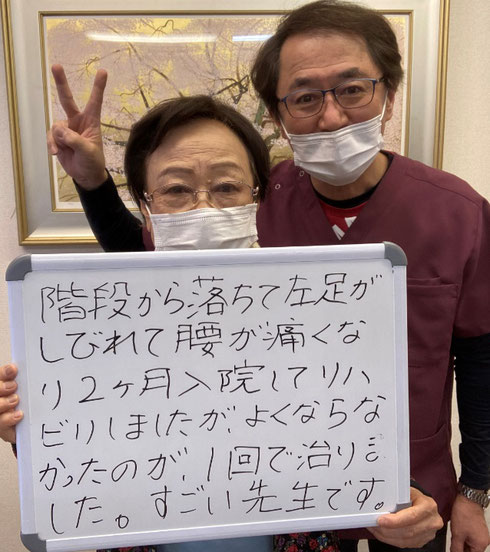 階段から落ちて左足が
しびれて腰が痛くな
り2ヶ月入院してリハ
ビリしましたが、よくならな
かったのが、1回で治りま
した。すごい先生です。